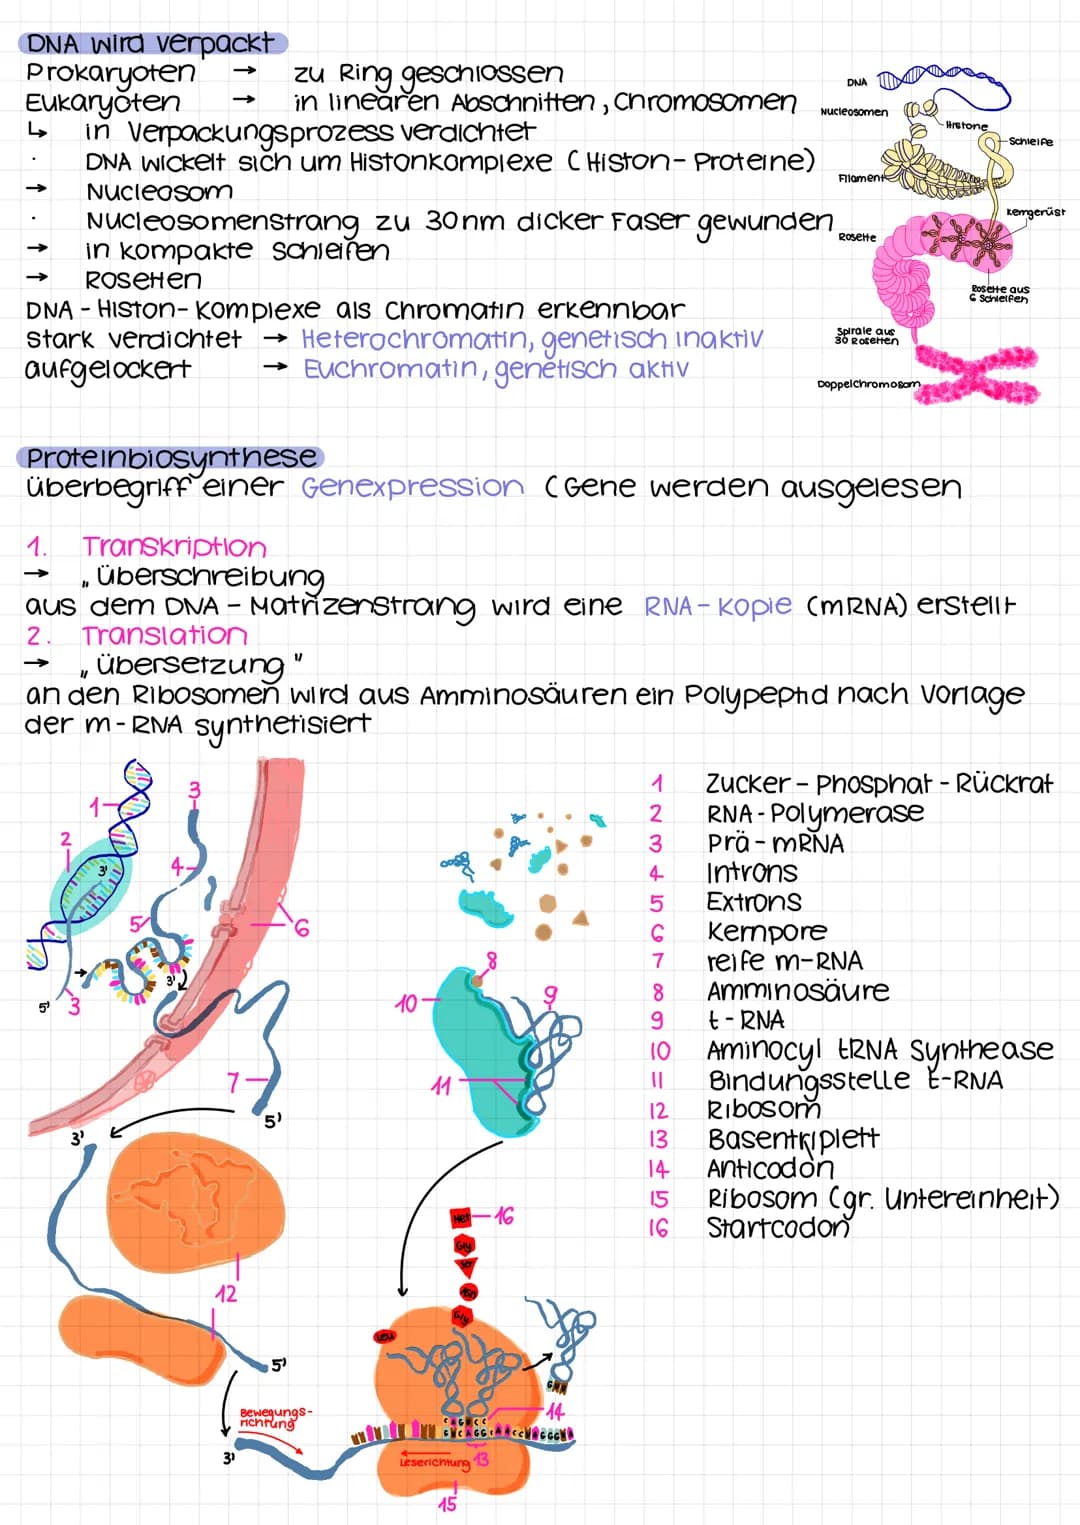 DNA wird verpackt
Prokaryoten → zu Ring geschlossen
Eukaryoten → in linearen Abschnitten, Chromosomen
↳ in Verpackungsprozess verdichtet
· DNA wickelt sich um Histonkomplexe (Histon-Proteine)
→ Nucleosom
· Nucleosomenstrang zu 30nm dicker Faser gewunden
→ in kompakte Schleifen
→ Rosetten
DNA-Histon-Komplexe als Chromatin erkennbar
stark verdichtet → Heterochromatin, genetisch inaktiv
aufgelockert → Euchromatin, genetisch aktiv
DNA
Nucleosomen
Histone
Schleife
Filament
Kerngerüst
Rosette
Rosette aus
6 Schleifen
Spirale aus
30 Rosetten
Doppelchromosom
Proteinbiosynthese
überbegriff einer Genexpression (Gene werden ausgelesen
1. Transkription
→ „überschreibung
aus dem DNA-Matrizenstrang wird eine RNA-Kopie (mRNA) erstellt
2. Translation
→ „übersetzung"
an den Ribosomen wird aus Amminosäuren ein Polypeptid nach Vorlage
der m-RNA synthetisiert
1 Zucker-Phosphat-Rückrat
2 RNA-Polymerase
3 Prä-mRNA
4 Introns
5 Extrons
6 Kernpore
7 reife m-RNA
8 Amminosäure
9 t-RNA
10 Aminocyl tRNA Synthease
11 Bindungsstelle t-RNA
12 Ribosom
13 Basentriplett
14 Anticodon
15 Ribosom (gr. Untereinheit)
16 Startcodon
1
2
3
3'
4
5
6
3'
5'
3
7
5'
3'
8
9
10
11
12
5'
16
Met
Gly
Ser
Asn
Gly
Leu
14
13
Bewegungs-
richtung
3'
Leserichtung
15